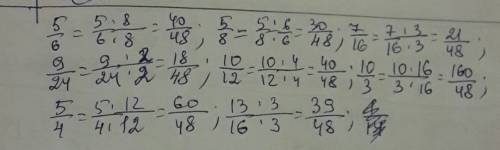 5/6 = 5·8/6·8 = 40/48; 5/8 = 5·6/8·6 = 30/48; 7/16 = 7·3/16·3 = 21/48;
9/24 = 9·2/24·2 = 18/48; 10/12 = 10·4/12·4 = 40/48; 10/3 = 10·16/3·16 = 160/48;
5/4 = 5·12/4·12 = 60/48; 13·3/16·3 = 39/48;